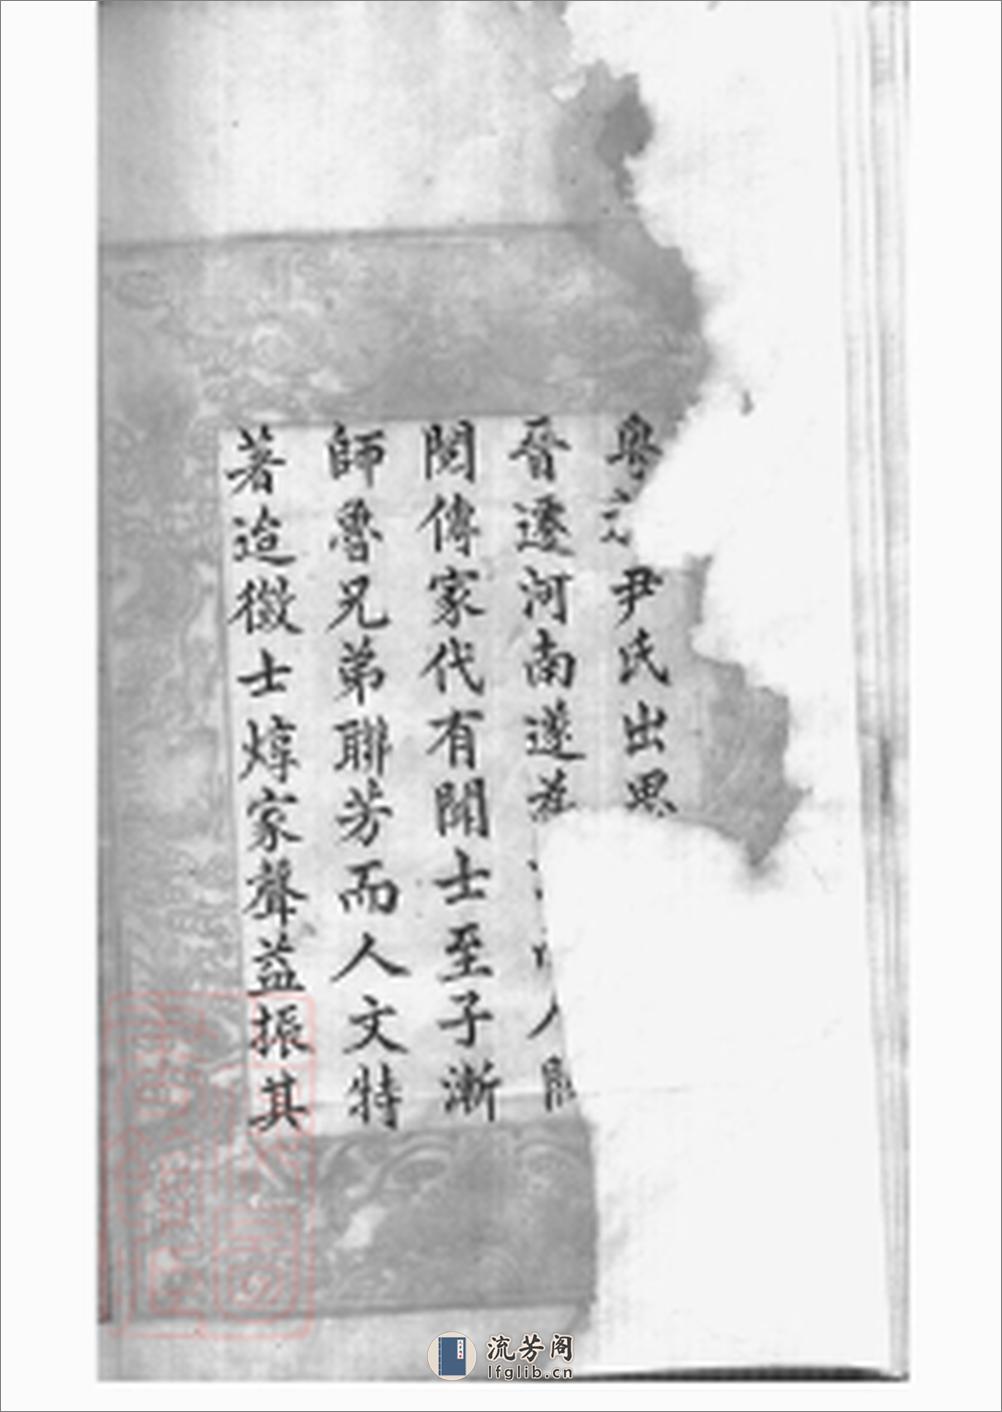 粤　尹氏出思
晉遷河南遂　　　人
閥傳家代有聞士至子漸
師魯兄弟聯芳而人文特
著迨徵士焞家聲益振其
流芳阁
lfglib.cn